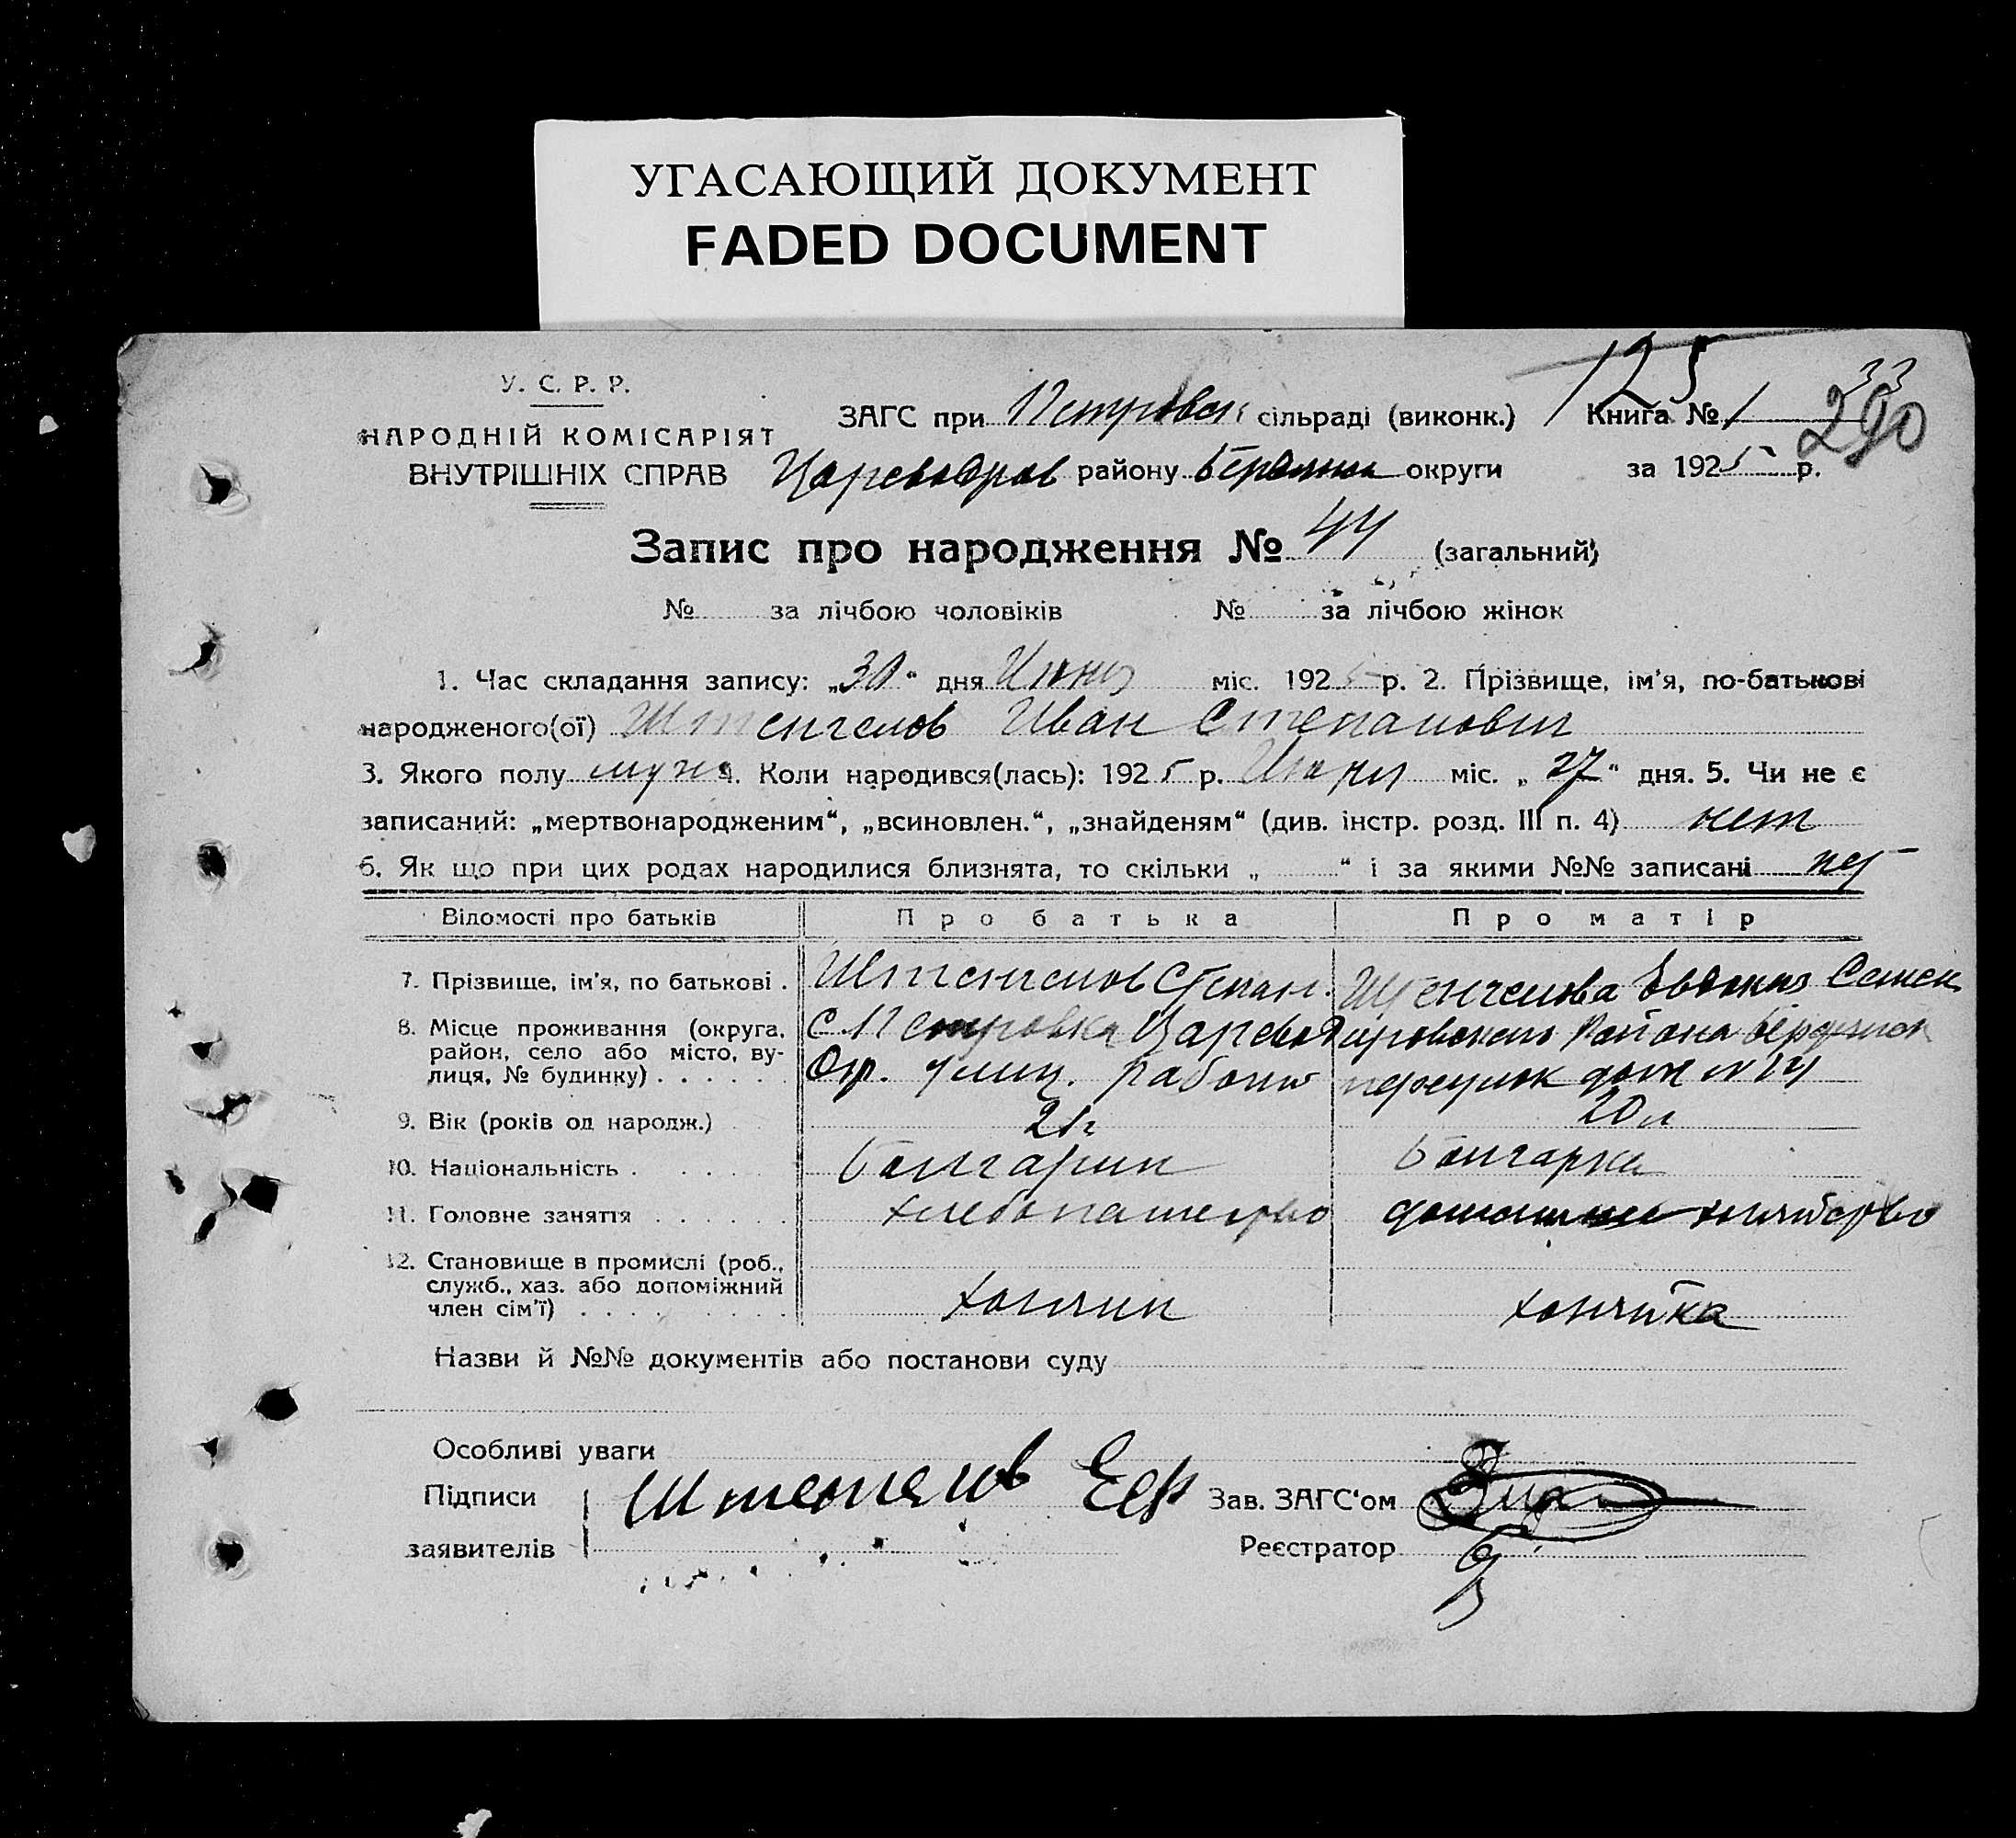 УГАСАЮЩИЙ ДОКУМЕНТ
FADED DOCUMENT
У. С. Р. Р.
НАРОДНІЙ КОМІСАРІЯТ
ВНУТРІШНІХ СПРАВ
125
33
290
ЗАГС при Петровск сільраді (виконк.) Книга № 1
району округи за 1925 р.
Запис про народження № 44 (загальний)
№ за лічбою чоловіків № за лічбою жінок
1. Час складання запису: „30“ дня Июня міс. 1925 р. 2. Прізвище, ім'я, по-батькові
народженого(ої) Штенгелов Иван Степанович
3. Якого полу муж 4. Коли народився(лась): 1925 р. Июня міс. „27“ дня. 5. Чи не є
записаний: „мертвонародженим“, „всиновлен.“, „знайденям“ (див. інстр. розд. III п. 4) нет
6. Як що при цих родах народилися близнята, то скільки „ “ і за якими №№ записані нет
Відомості про батьків Про батька Про матір
7. Прізвище, ім'я, по батькові . Штенгелов Степан. Штенгелова Евдокия Семен
8. Місце проживання (округа, район, село або місто, вулиця, № будинку) . . . . . . С. Петровка района
Окр. улиц. дом № 14
9. Вік (років од народж.) 21 г 20 л
10. Національність . . . . . Болгарин Болгарка
11. Головне заняття . . . . . . хлебопашество домашнее хозяйство
12. Становище в промислі (роб., служб., хаз. або допоміжний член сім'ї) . . . . . . . . хозяин хозяйка
Назви й №№ документів або постанови суду
Особливі уваги
Підписи
заявителів
Штенгелов
Зав. ЗАГС'ом
Реєстратор